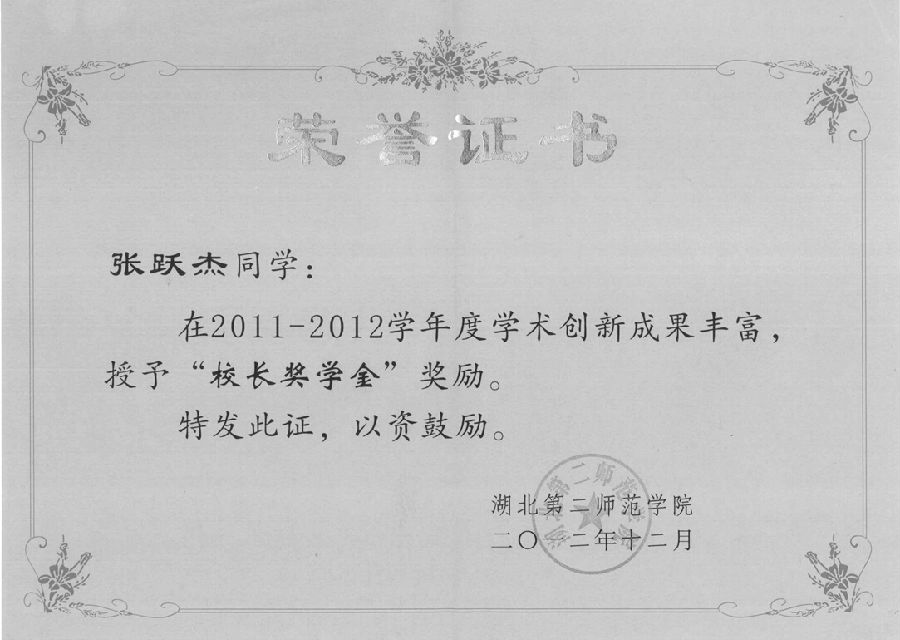 荣誉证书
张跃杰同学：
在2011-2012学年度学术创新成果丰富，
授予“校长奖学金”奖励。
特发此证，以资鼓励。
湖北第二师范学院
二〇一二年十二月
湖北第二师范学院